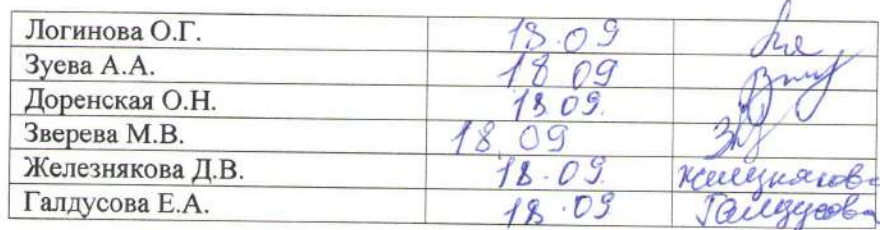 Логинова О.Г. 18.09
Зуева А.А. 18 09
Доренская О.Н. 18.09.
Зверева М.В. 18.09
Железнякова Д.В. 18.09. Железнякова
Галдусова Е.А. 18.09 Галдусова